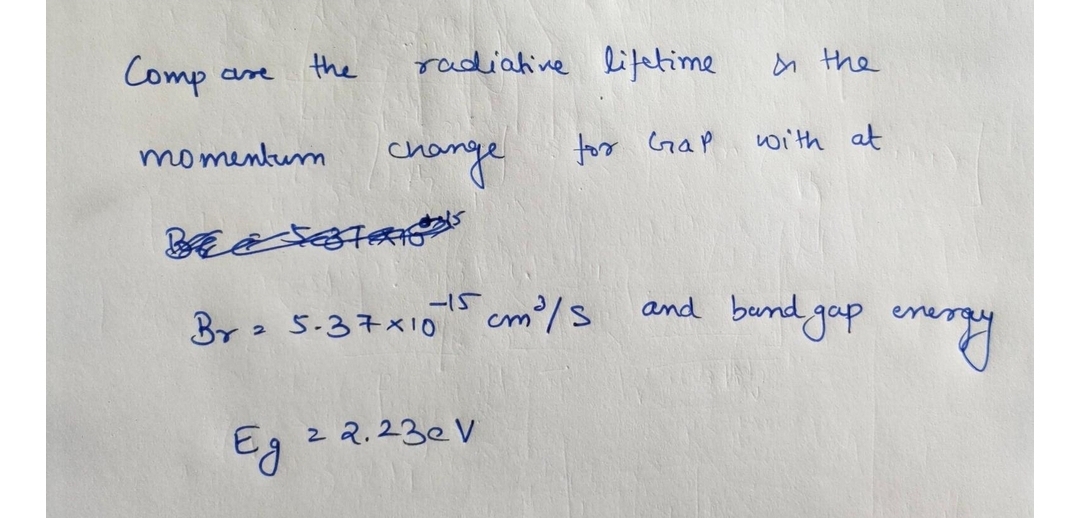 Compare the radiative lifetime & the
momentum change for GaP with at
Br = 5.37×10⁻¹⁵ cm³/s and bandgap energy
Eg = 2.23eV